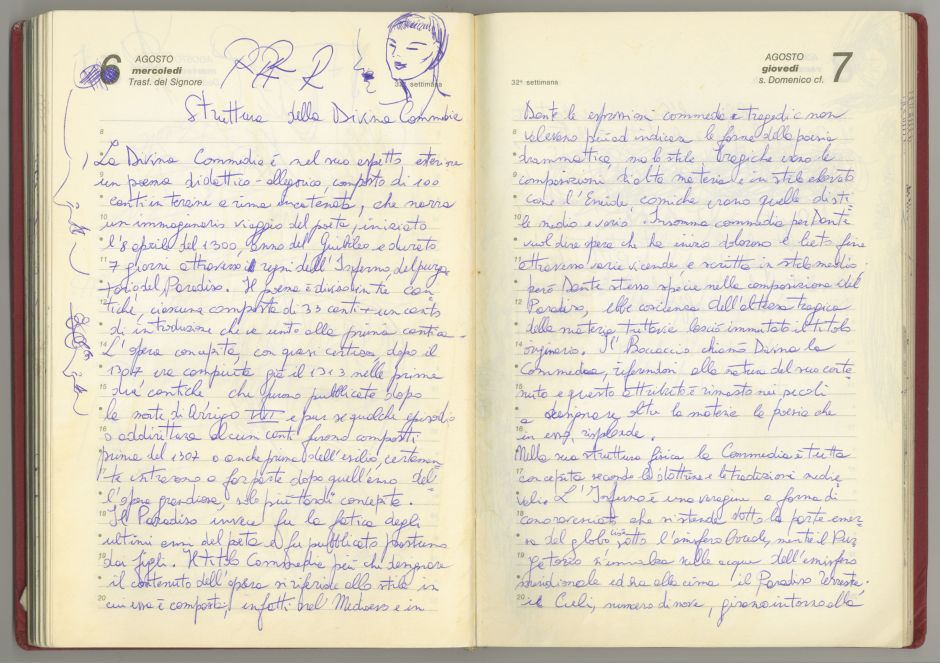 6
AGOSTO
mercoledì
Trasf. del Signore
R R R
32ª settimana
Struttura della Divina Commedia
8
1) La Divina Commedia è nel suo aspetto esteriore
un poema didattico-allegorico, composto di 100
9
canti in terzine a rima incatenata, che narra
10
un immaginario viaggio del poeta, iniziato
l'8 aprile del 1300, anno del Giubileo e durato
11
7 giorni attraverso i regni dell'Inferno del purga
torio del Paradiso. Il poema è diviso in tre can=
12
tiche, ciascuna composta di 33 canti + un canto
di introduzione che va unito alla prima cantica.
14
L'opera concepita, con quasi certezza, dopo il
1307 era compiuta già il 1313 nelle prime
15
due cantiche che furono pubblicate dopo
la morte di Arrigo VII e pur se qualche episodio
16
o addirittura alcuni canti furono composti
prima del 1307 o anche prima dell'esilio, certamen=
17
te entrarono a far parte dopo quell'anno del=
l'opera grandiosa, solo più tardi concepita.
18
Il Paradiso invece fu la fatica degli
ultimi anni del poeta e fu pubblicato postumo
19
dai figli. Il titolo Commedia più che designare
il contenuto dell'opera si riferisce allo stile in
20
cui essa è composta, infatti nel Medioevo e in
32ª settimana
AGOSTO
giovedì
s. Domenico cf.
7
Dante le espressioni commedia e tragedia non
8
valevano più ad indicare le forme della poesia
drammatica, ma lo stile. Tragiche erano le
9
composizioni di alta materia e in stile elevato
10
come l'Eneide, comiche erano quelle di sti=
le medio e vario. Insomma commedia per Dante
11
vuol dire opera che ha inizio doloroso e lieto fine
attraverso varie vicende e scritta in stile medio.
12
però Dante stesso specie nella composizione del
Paradiso, ebbe coscienza dell'altezza tragica
della materia tuttavia lasciò immutato il titolo
14
originario. Il Boccaccio chiamò Divina la
Commedia, riferendosi alla natura del suo conte
15
nuto e questo attributo è rimasto nei secoli
a designare oltre la materia la poesia che
16
in essa risplende.
Nella sua struttura fisica la Commedia è tutta
17
concepita secondo le dottrine e le tradizioni medie
vali. L'Inferno è una voragine a forma di
18
cono rovesciato che si stende sotto la parte emer=
sa del globo cioè sotto l'emisfero boreale, mentre il Pur
19
gatorio s'innalza nelle acque dell'emisfero
meridionale ed ha alla cima il Paradiso terrestre.
20
i Cieli, numero di nove, girano intorno alla